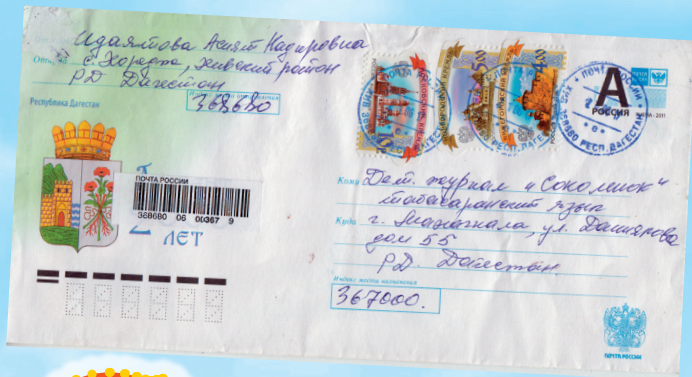 Идаятова Асият Кадировна
с. Хоредж, Хивский район
РД Дагестан
368680
Республика Дагестан
ПОЧТА РОССИИ
368680 06 00367 9
ЛЕТ
А
РОССИЯ
ПОЧТА РОССИИ
368680 РЕСП. ДАГЕСТАН
Кому Дет. журнал "Соколёнок"
табасаранский язык
Куда г. Махачкала, ул. Даниялова
дом 55
РД. Дагестан.
Индекс места назначения
367000.
ПОЧТА РОССИИ